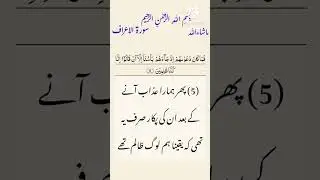 بسم الله الرحمن الرحيم
ماشاءاللہ
سورة الاعراف
فَمَا كَانَ دَعْوٰىهُمْ اِذْ جَآءَهُمْ بَاْسُنَاۤ اِلَّاۤ اَنْ قَالُوْۤا اِنَّا
كُنَّا ظٰلِمِيْنَ
(5) پھر ہمارا عذاب آنے
کے بعد ان کی پکار صرف یہ
تھی کہ یقینا ہم لوگ ظالم تھے